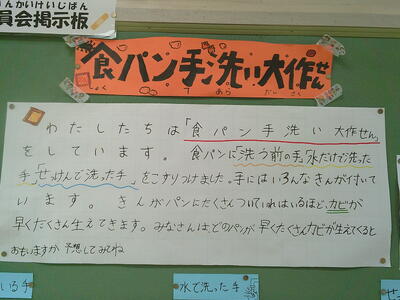 いんかいけいじばん
員会掲示板
食パン手洗い大作せん
しょく て あら だい さく
わたしたちは「食パン手洗い大作せん」
をしています。食パンに「洗う前の手」「水だけで洗った
手」「せっけんで洗った手」をこすりつけました。手にはいろんなきんが付いて
います。きんがパンにたくさんついていればいるほど、カビが
早くたくさん生えてきます。みなさんは、どのパンが早くたくさんカビが生えてくると
おもいますか 予想してみてね
いる手
水で洗った手
せ